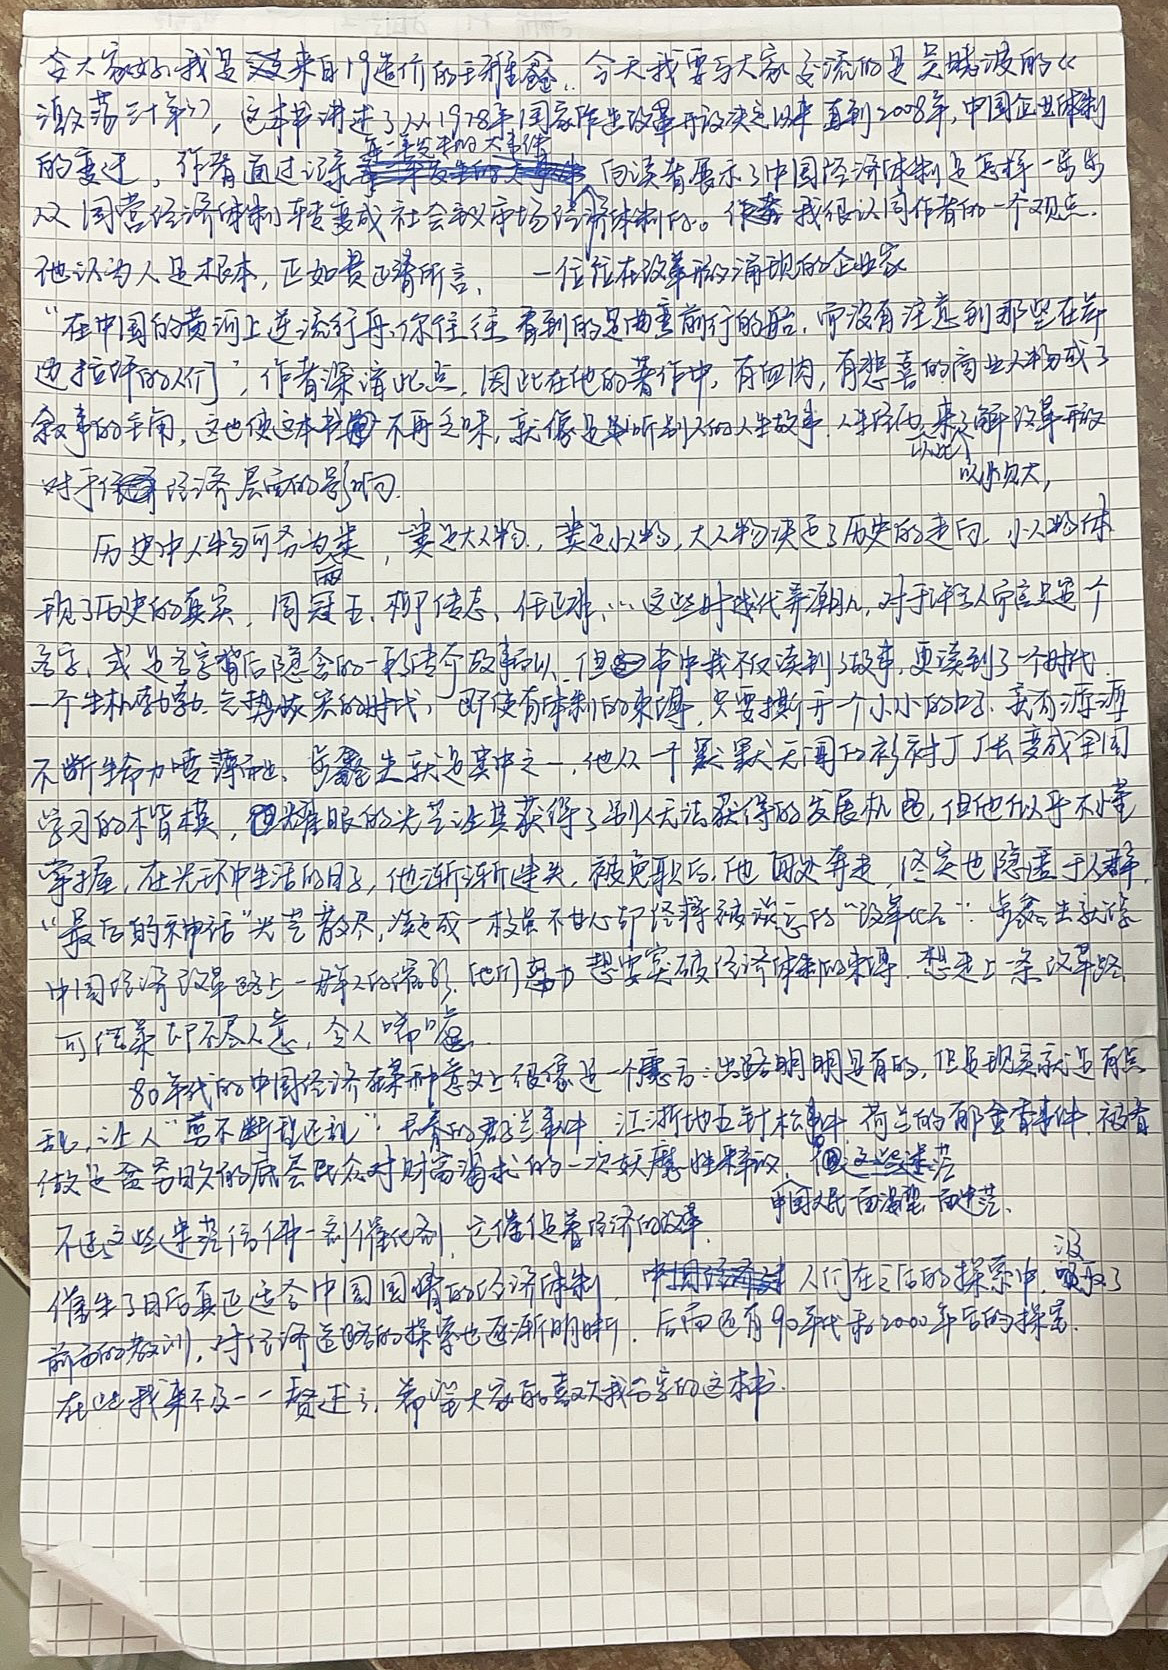 大家好,我是来自19造价的王雅鑫。今天我要与大家交流的是吴晓波的《
激荡三十年》,这本书讲述了从1978年国家作出改革开放决定以来直到2008年,中国企业体制
的变迁,作者通过记录每一年发生的大事件向读者展示了中国经济体制是怎样一步步
从国营经济体制转变成社会主义市场经济体制的。我很认同作者的一个观点.
他认为人是根本,正如费正清所言, 一位位在改革形涌现的企业家
“在中国的黄河上逆流行舟,你往往看到的是曲折前行的船,而没有注意到那些在岸
边拉纤的人们”,作者深谙此点,因此在他的著作中,有血肉,有悲喜的商业人物成了
叙事的主角,这也使这本书不再乏味,就像是听别人的人生故事,人生经历,来了解改革开放
以此 以小见大,
对于经济层面的影响.
历史中人物可分为两类,一类是大人物,一类是小人物,大人物决定了历史的走向,小人物体
现了历史的真实,周冠五、柳传志、任正非…这些时代弄潮儿,对于许多人而言只是个
名字,或是名字背后隐含的一段传奇故事而以,但书中我不仅读到了故事,更读到了一个时代.
一个生机勃勃、气势恢宏的时代,即使有体制的束缚,只要撕开一个小小的口子,就有源源
不断生命力喷薄而出、步鑫生就是其中之一,他从一个默默无闻的衬衫厂厂长变成全国
学习的楷模,耀眼的光芒让其获得了别人无法获得的发展机遇,但他似乎不懂
掌握,在光环中生活的日子,他渐渐迷失,被免职后,他四处奔走,终究也隐匿于人群.
“最后的神话”光芒散尽,凝成一枚虽不甘心却终将被淡忘的“改革化石”.步鑫生就像
中国经济改革路上一群人的缩影,他们想要突破经济体制的束缚,想走上一条改革路
可结果却不尽人意,令人唏嘘.
80年代的中国经济在某种意义上很像是一个寓言:出路明明是有的,但是现实就是有点
乱,让人“剪不断理还乱”.长春的君子兰事件.江浙地五针松事件 荷兰的郁金香事件,被看
做是蛰居日久的底层民众对财富渴求的一次妖魔性释放,
中国人民一面渴望一面迷茫、
不过这些迷茫信仰一剂催化剂,它催促着经济的改革,
催生了日后真正适合中国国情的经济体制,人们在之后的探索中,汲取了
前面的教训,对经济道路的探索也逐渐明晰,后面还有90年代和2000年后的探索.
在此我来不及一一赘述了,希望大家能喜欢我分享的这本书.